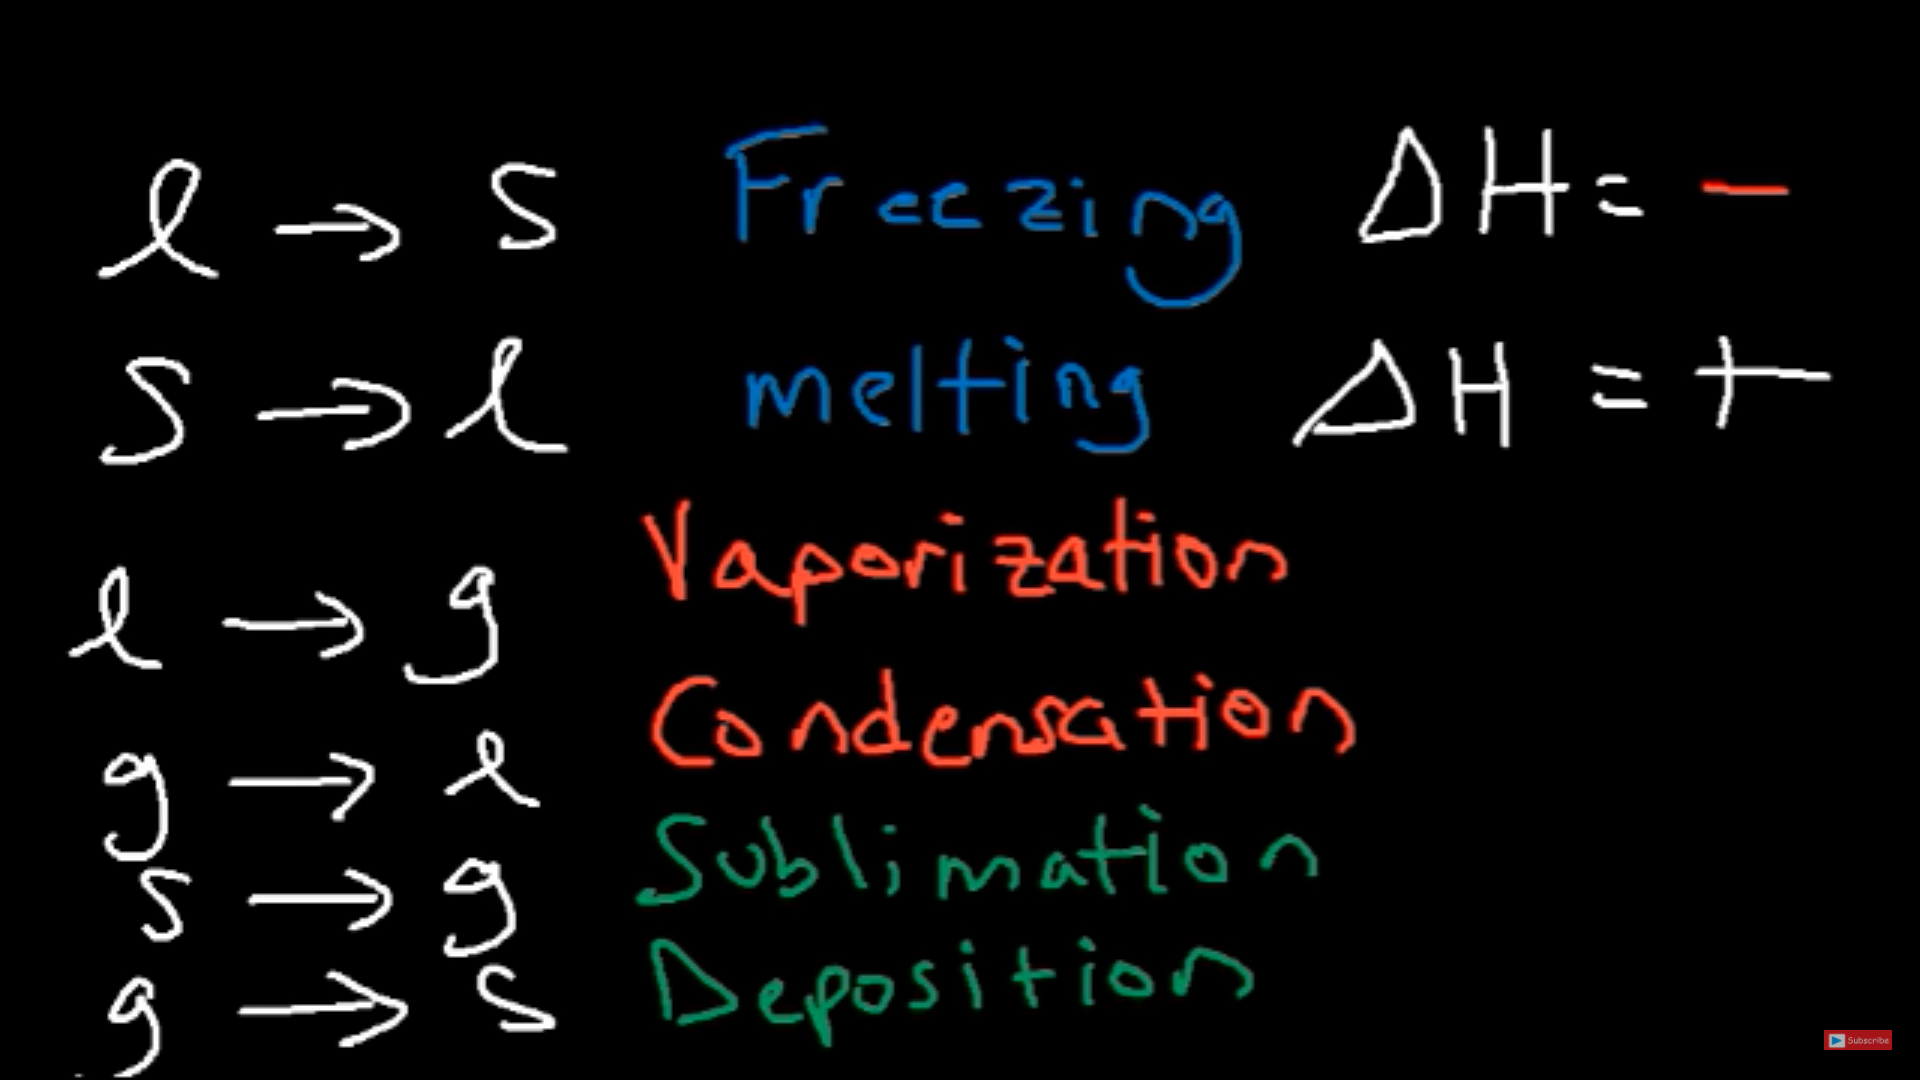 l → s Freezing ΔH = −
s → l melting ΔH = +
l → g Vaporization
g → l Condensation
s → g Sublimation
g → s Deposition
Subscribe